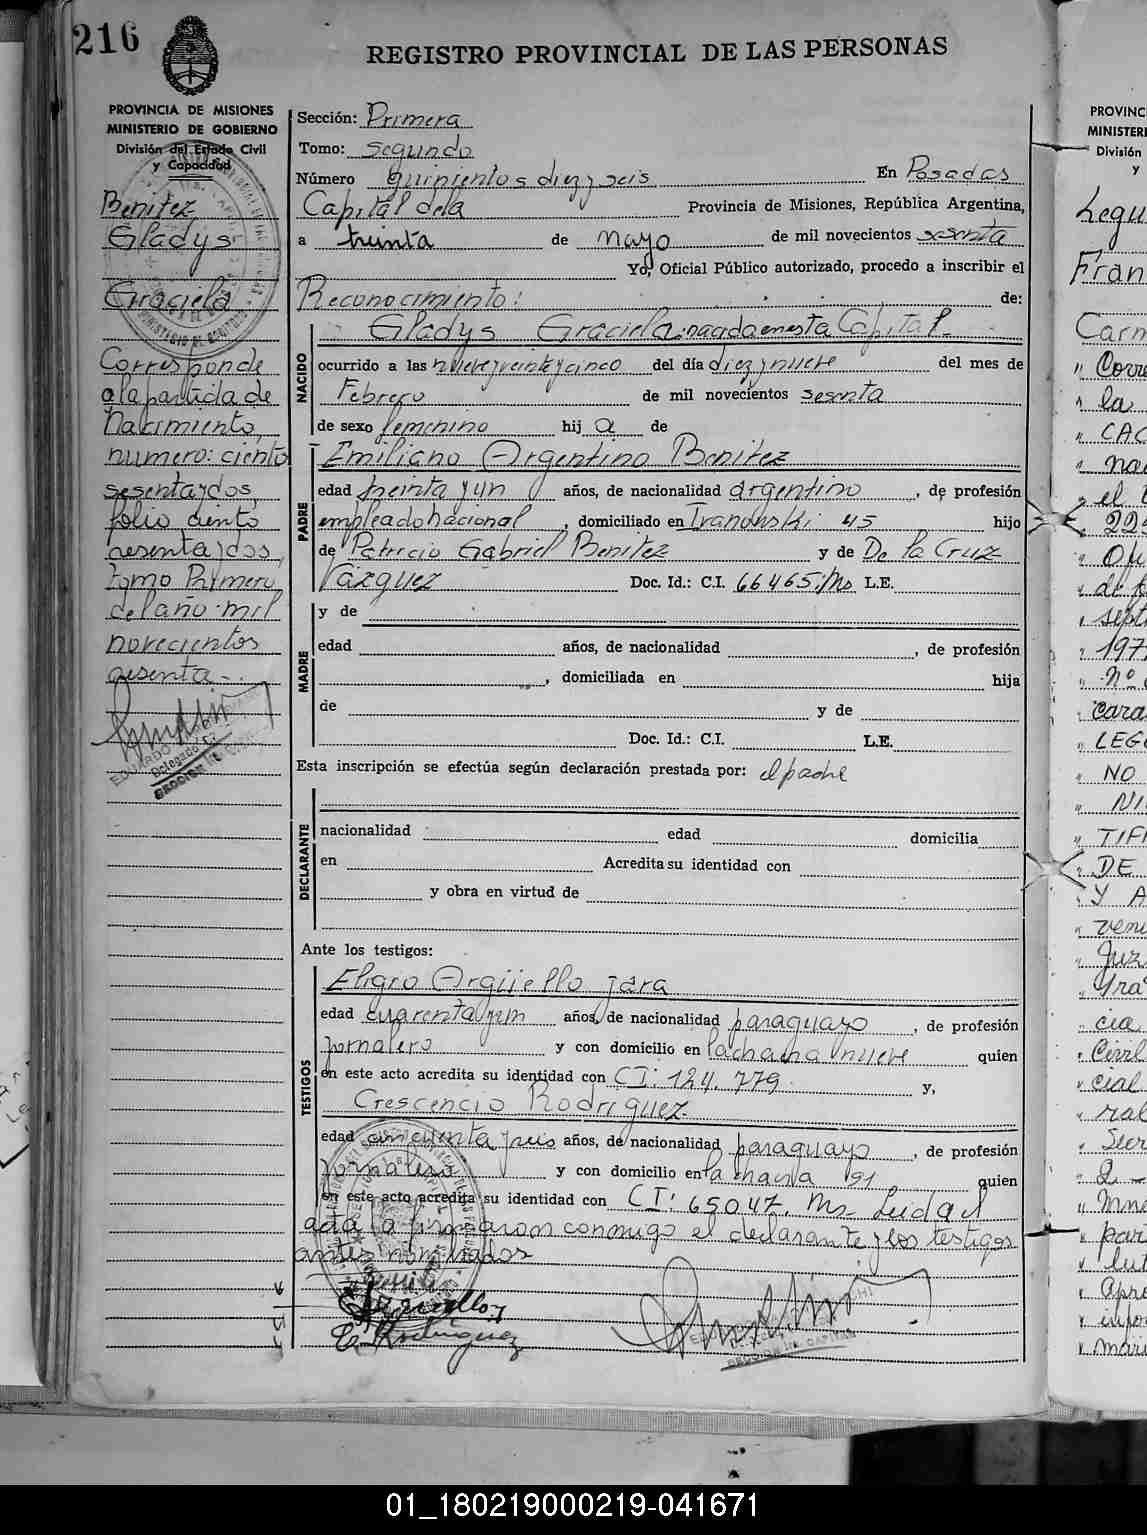 216
REGISTRO PROVINCIAL DE LAS PERSONAS
PROVINCIA DE MISIONES
MINISTERIO DE GOBIERNO
División del Estado Civil
y Capacidad
Benitez
Gladys
Graciela
Corresponde
a la partida de
Nacimiento,
numero: ciento
sesenta y dos,
folio ciento
sesenta y dos,
Tomo Primero
del año mil
novecientos
sesenta -.
Sección: Primera
Tomo: Segundo
Número Quinientos diez y seis En Posadas
Capital de la Provincia de Misiones, República Argentina,
a treinta de mayo de mil novecientos sesenta
Yo, Oficial Público autorizado, procedo a inscribir el
Reconocimiento: de:
NACIDO
Gladys Graciela: nacida en esta Capital.
ocurrido a las nueve y veinte y cinco del día diez y nueve del mes de
Febrero de mil novecientos sesenta
de sexo femenino hij a de
PADRE
Emiliano Argentino Benitez
edad treinta y un años, de nacionalidad argentino, de profesión
empleado nacional, domiciliado en Ivanowski 45 hijo
de Patricio Gabriel Benitez y de De la Cruz
Vázquez Doc. Id.: C.I. 66465. Ms L.E.
MADRE
y de
edad años, de nacionalidad , de profesión
, domiciliada en hija
de y de
Doc. Id.: C.I. L.E.
Esta inscripción se efectúa según declaración prestada por: el padre
DECLARANTE
nacionalidad edad domicilia
en Acredita su identidad con
y obra en virtud de
Ante los testigos:
TESTIGOS
Eligio Argüello Jara
edad cuarenta y un años, de nacionalidad paraguayo, de profesión
jornalero y con domicilio en la chacra nueve quien
en este acto acredita su identidad con CI: 124.779. y,
Crescencio Rodriguez.
edad cincuenta y seis años, de nacionalidad paraguayo, de profesión
jornalero y con domicilio en la chacra 91 quien
en este acto acredita su identidad con CI: 65047. Ms- Leida el
acta la firmaron conmigo el declarante y los testigos
antes nombrados
E. Rodriguez
PROVINC
MINISTERI
División
y
Legu
Fran
Carm
" Corre
" la
" CAC
LEG
NO
TIF
DE
Y A
01_180219000219-041671